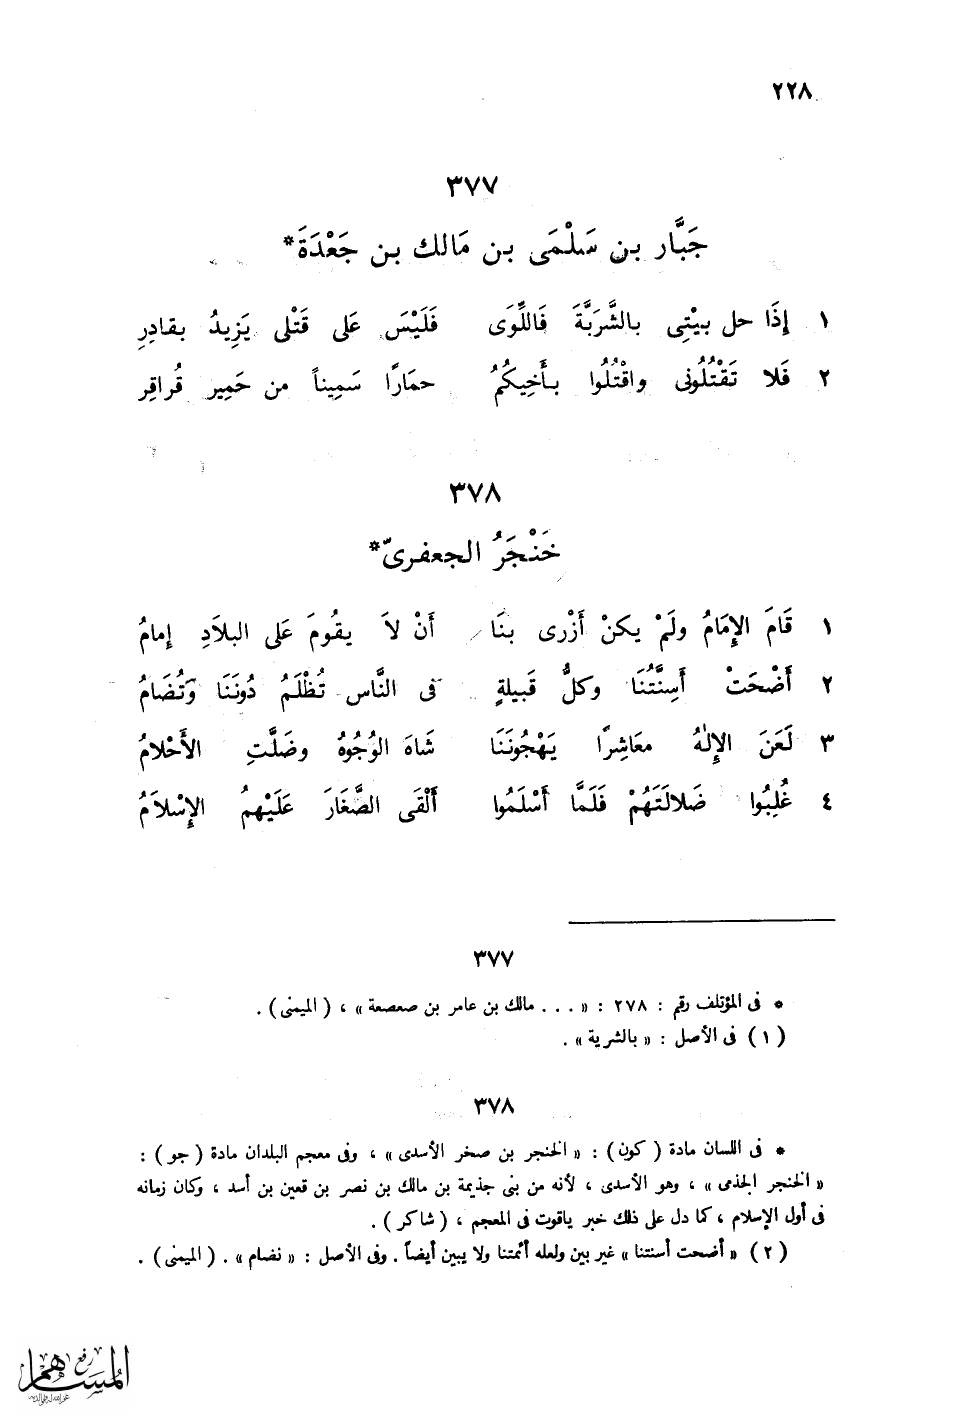 ٢٢٨
٣٧٧
جَبَّار بن سَلْمَى بن مَالك بن جَعْدَةَ*
١ إِذَا حل بيْتِى بالشَّرَبَّةَ فَاللِّوَى فَلَيْسَ عَلى قَتْلى يَزِيدُ بقادِرِ
٢ فَلا تَقْتُلُونى واقْتُلُوا بأَخِيكُمُ حمَارًا سَمِيناً من حَمِير قُراقِر
٣٧٨
خَنْجَرُ الجعفرىّ*
١ قَامَ الإِمَامُ ولَمْ يكنْ أزْرى بنَا أَنْ لاَ يقُومَ عَلى البلاَدِ إمامُ
٢ أَضْحَتْ أَسِنَّتُنَا وكلُّ قَبيلةٍ فى النَّاس تُظْلَمُ دُونَنَا وَتُضَامُ
٣ لَعَنَ الإِلٰهُ معَاشِرًا يَهْجُونَنَا شَاهَ الوُجُوهُ وضَلَّتِ الأَحْلامُ
٤ غُلِبُوا ضَلالَتَهُمْ فَلَمَّا أَسْلَمُوا أَلْقَى الصَّغَارَ عَلَيْهمُ الإِسْلاَمُ
٣٧٧
* فى المؤتلف رقم : ٢٧٨ : « . . . مالك بن عامر بن صعصعة » ، ( الميمنى ) .
( ١ ) فى الأصل : « بالشربة » .
٣٧٨
* فى اللسان مادة ( كون ) : « الخنجر بن صخر الأسدى » ، وفى معجم البلدان مادة ( جو ) :
« الخنجر الجذمى » ، وهو الأسدى ، لأنه من بنى جذيمة بن مالك بن نصر بن قعين بن أسد ، وكان زمانه
فى أول الإسلام ، كما دل على ذلك خبر ياقوت فى المعجم ، ( شاكر ) .
( ٢ ) « أضحت أسنتنا » غير بين ولعله أئمتنا ولا يبين أيضاً . وفى الأصل : « نضام » . ( الميمنى ) .
رفع
المساهم